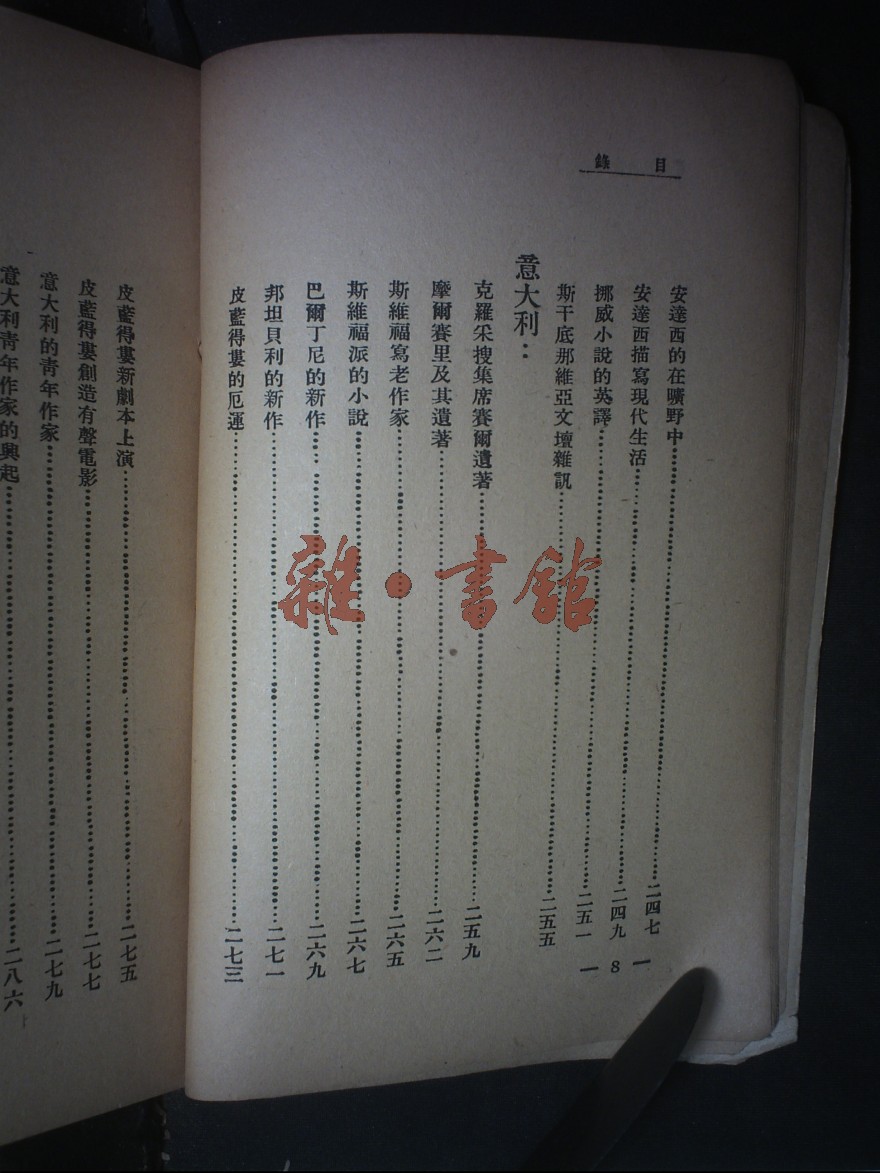 目錄
安達西的在曠野中……二四七
安達西描寫現代生活……二四九
挪威小說的英譯……二五一
斯干底那維亞文壇雜訊……二五五
意大利：
克羅采搜集席賽爾遺著……二五九
摩爾賽里及其遺著……二六二
斯維福寫老作家……二六五
斯維福派的小說……二六七
巴爾丁尼的新作……二六九
邦坦貝利的新作……二七一
皮藍得婁的厄運……二七三
— 8 —
皮藍得婁新劇本上演……二七五
皮藍得婁創造有聲電影……二七七
意大利的青年作家……二七九
意大利青年作家的興起……二八六
雜·書館